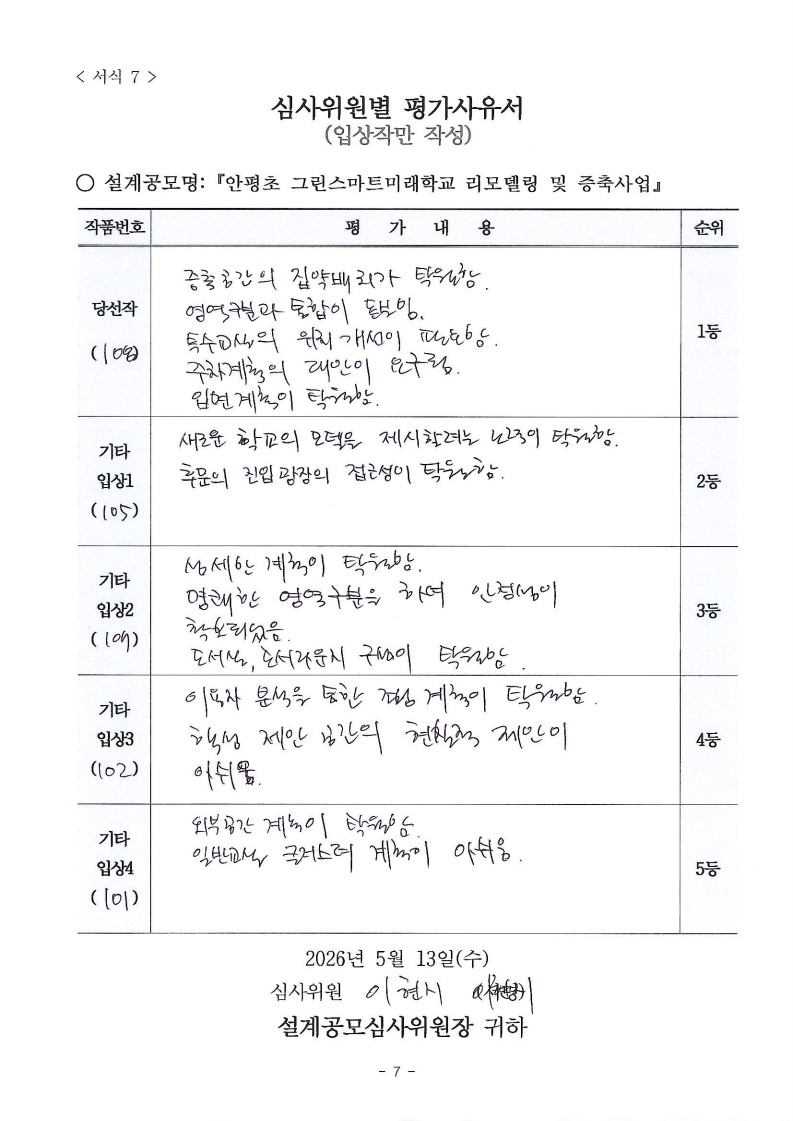 < 서식 7 >
심사위원별 평가사유서
(입상작만 작성)
○ 설계공모명:『안평초 그린스마트미래학교 리모델링 및 증축사업』
작품번호 평 가 내 용 순위
당선작
(108)
증축공간의 집약배치가 탁월함.
영역구분과 통합이 돋보임.
특수교실의 위치 개선이 필요함.
주차계획의 대안이 요구됨.
입면계획이 탁월함.
1등
기타
입상1
(105)
새로운 학교의 모델을 제시할려는 탁월함.
후문의 진입광장의 접근성이 탁월함.
2등
기타
입상2
(109)
상세한 계획이 탁월함.
명쾌한 영역구분을 하여 안정성이
확보되었음.
도서실, 도서라운지 구성이 탁월함
3등
기타
입상3
(102)
이용자 분석을 통한 계획이 탁월함.
특성 제안 공간의 현실적 제안이
아쉬움.
4등
기타
입상4
(101)
외부공간 계획이 탁월함.
일반교실 클러스터 계획이 아쉬움.
5등
2026년 5월 13일(수)
심사위원 이현시
설계공모심사위원장 귀하
- 7 -